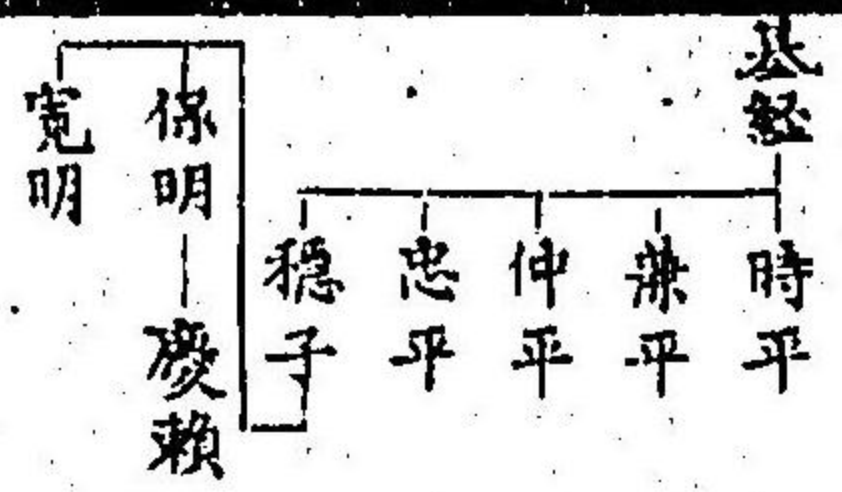 基経
時平
兼平
仲平
忠平
穏子
保明
慶頼
寛明